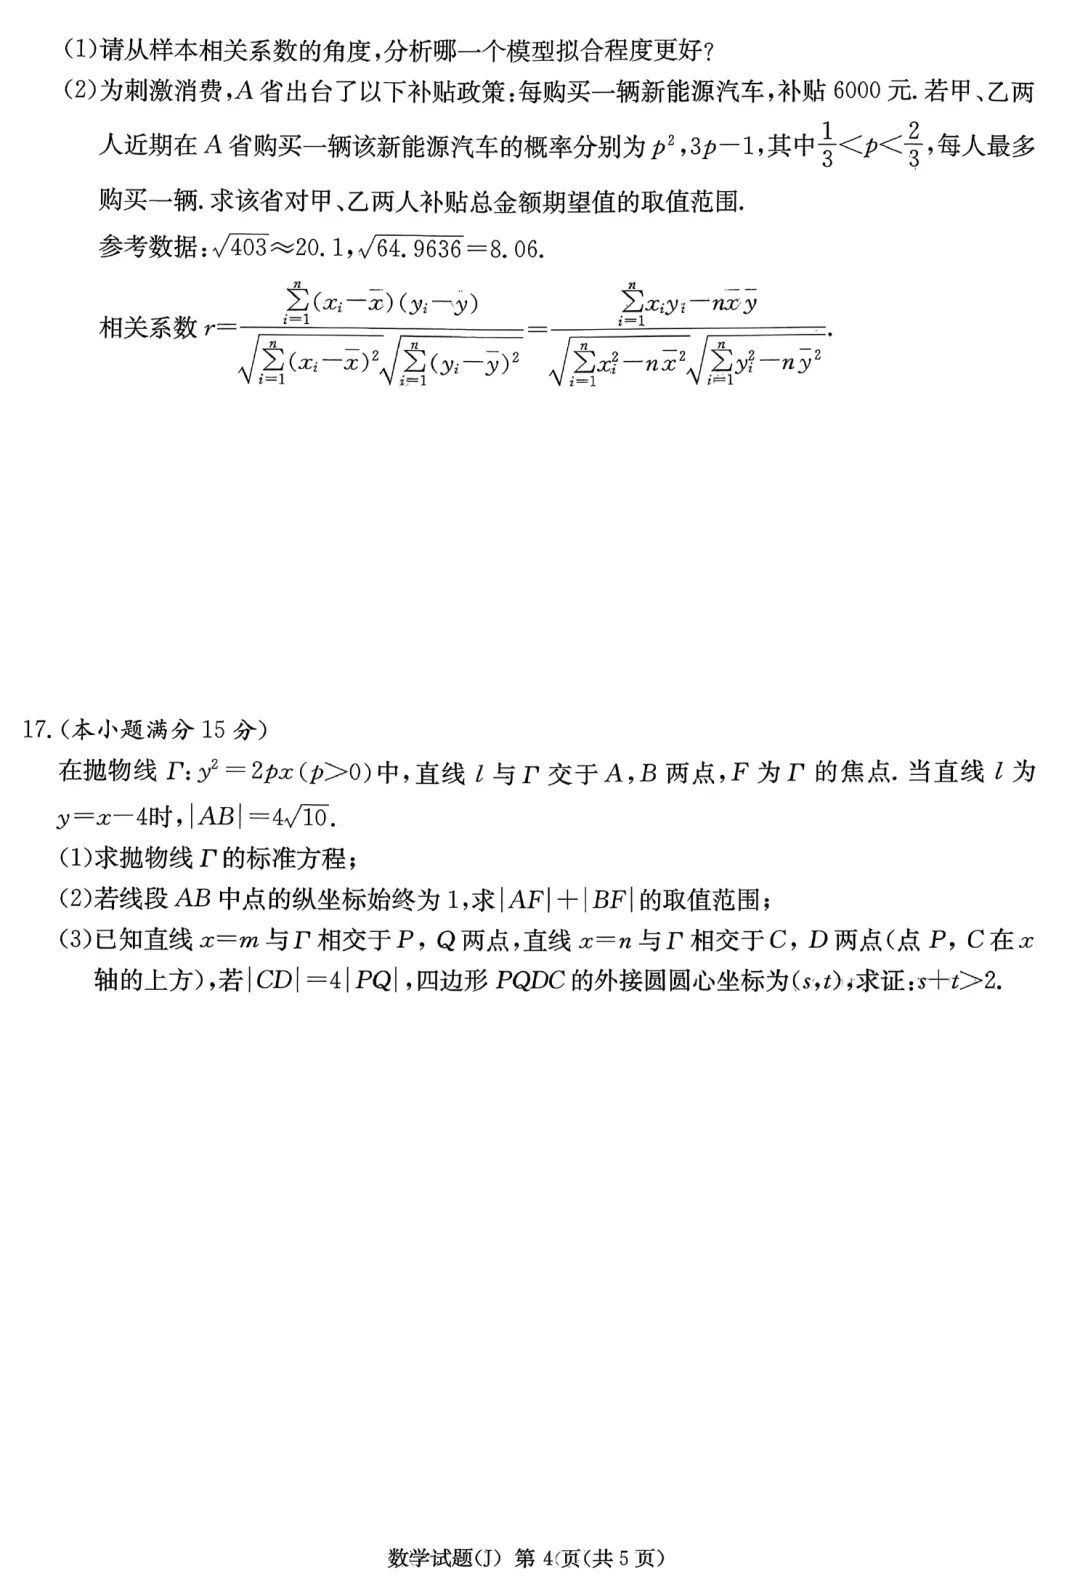 (1)请从样本相关系数的角度,分析哪一个模型拟合程度更好?
(2)为刺激消费,A 省出台了以下补贴政策:每购买一辆新能源汽车,补贴 6000 元. 若甲、乙两
人近期在 A 省购买一辆该新能源汽车的概率分别为 p²,3p－1,其中 1/3＜p＜2/3,每人最多
购买一辆. 求该省对甲、乙两人补贴总金额期望值的取值范围.
参考数据:√403≈20. 1,√64. 9636=8. 06.
相关系数 r= ∑_{i=1}^{n}(x_i－x̄)(y_i－ȳ) / (√(∑_{i=1}^{n}(x_i－x̄)²) √(∑_{i=1}^{n}(y_i－ȳ)²)) = (∑_{i=1}^{n}x_iy_i－nx̄ȳ) / (√(∑_{i=1}^{n}x_i²－nx̄²) √(∑_{i=1}^{n}y_i²－nȳ²)).
17. (本小题满分 15 分)
在抛物线 Γ: y²＝2px(p＞0)中,直线 l 与 Γ 交于 A,B 两点,F 为 Γ 的焦点. 当直线 l 为
y=x－4时,|AB|＝4√10.
(1)求抛物线 Γ 的标准方程;
(2)若线段 AB 中点的纵坐标始终为 1,求|AF|＋|BF|的取值范围;
(3)已知直线 x=m 与 Γ 相交于 P, Q 两点,直线 x=n 与 Γ 相交于 C, D 两点(点 P, C 在 x
轴的上方),若|CD|＝4|PQ|,四边形 PQDC 的外接圆圆心坐标为(s,t),求证:s＋t＞2.
数学试题(J) 第 4 页(共 5 页)